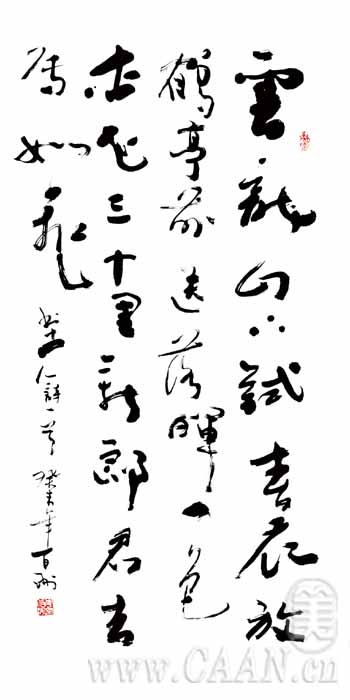 雲龍山下試春衣放
鶴亭前送落暉一色
杏花三十里新郎君去
馬如飛
人詩一首 癸未年
美
www.CAAN.cn